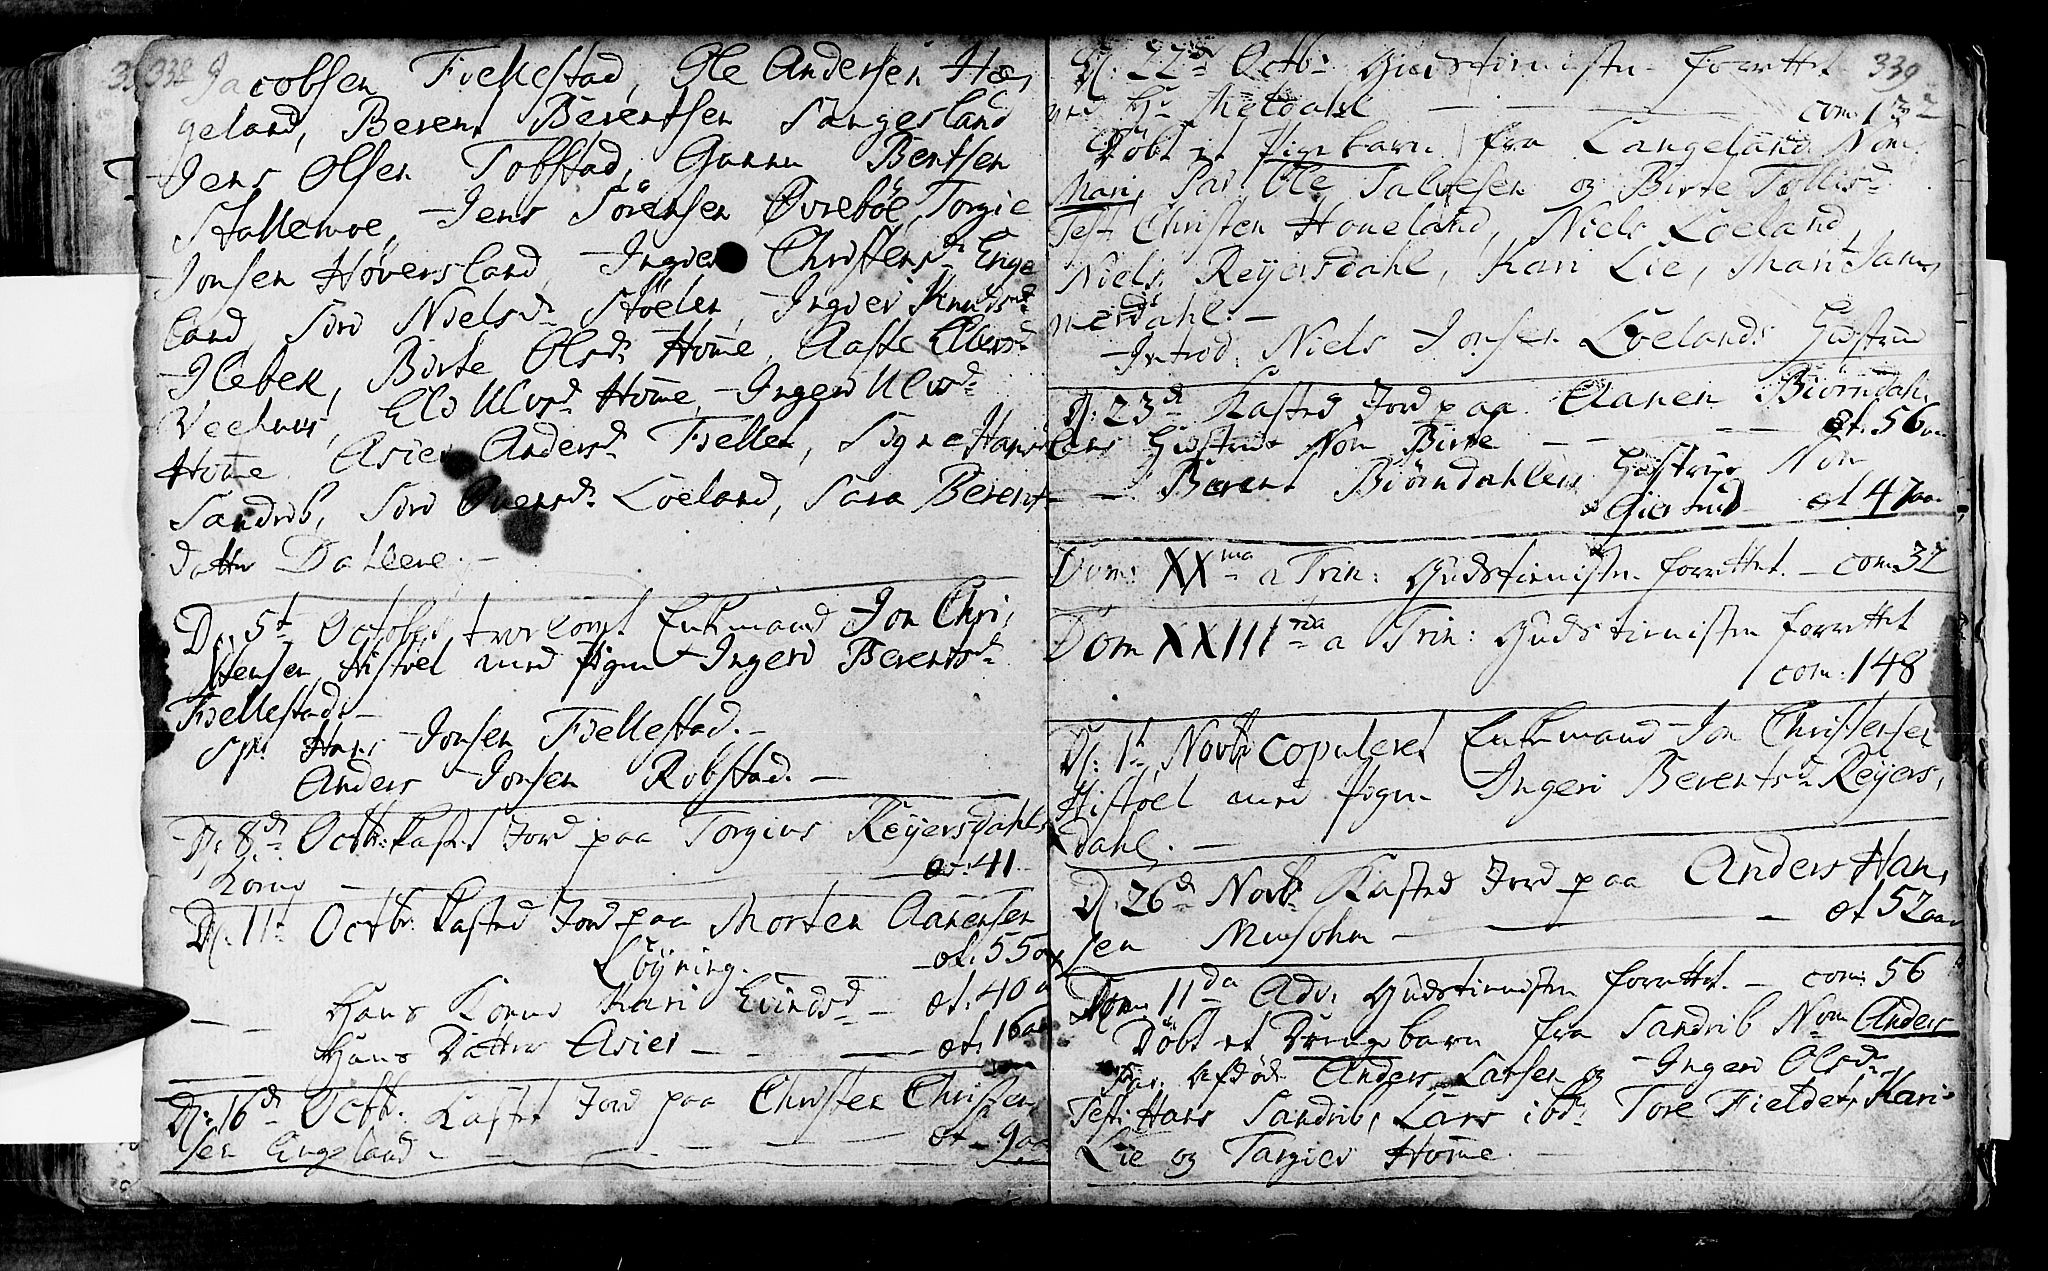 338
Jacobsen Fiellestad, Ole Andersen Hæ,
geland, Berent Berentsen Sangesland
Jens Olsen Tobstad, Gunnu Bentsen
Stallemoe, Jens Sörensen Øvreböe, Torgie
Jonsen Höversland, Ingier Christensdr Enge
land, Siri Nielsdr Stöelen, Ingier Knudsd
Ilebek, Birte Olsdr Home, Aaste Ellevsd
Veehuus, Eli Ulvsdr Home, Ingeri Ulvsdr
Home Asier Andersdr Fiellet, Signe Hans
Sandrib, Siri Svensdr Löeland, Sara Berent
datter Dahlene. –
D: 5t October trolovet Enkemand Jon Chri,
stensen Histöel med pigen Ingeri Berentsdr
Fiellestad. –
Sp: Hans Jonsen Fiellestad. –
Anders Jonsen Robstad. –
D: 8de Octb: kasted Jord paa Torgius Reÿersdahls
Kone – æt: 41
D: 11t Octbr kasted Jord paa Morten Aanensen
Löÿning. – æt: 55 aar
– – Hans Kone Kari Evindsd – æt: 40 a
Hans Datter Asier – – – æt: 16 aar
D: 16de Octb: Kasted Jord paa Christen Christen,
sen Engeland – – – – æt – 9 aar
339
D: 22de Octb: Gudstienisten forrettet
ved Hr Meldahl – – – com: 132
Döbt et Pigebarn fra Langeland Nom
Mari, Par: Ole Salvesen og Birte Tollisd
Test: Christen Honeland, Niels Löeland,
Niels Reÿersdahl, Kari Lie, Mari Jam,
merdahl. –
Introd: Niels Jonsen Löelands Hustrue
D: 23de Kasted Jord paa Aanen Biörndah,
lens Hustrue Nom Birte – – – æt: 56 aar
– – Berent Biörndahlens Hustrue Nom
Giertrud æt 47 aar
Dom: XXma a Trin: Gudstienisten forrettet. – com: 32
Dom XXIIItia a Trin: Gudstienisten forrettet
com: 148
D: 1t Novbr copuleret Enkemand Jon Christensen
Histöel med pigen Ingeri Berentsdr Reÿers,
dahl. –
D: 26de Novbr Kasted Jord paa Anders Han,
sen Musohm – – – æt 52 aar
Dom: 11da Adv: Gudstienisten forrettet. – com: 56
Döbt et Drengebarn fra Sandrib Nom Anders
Par: Afdöde Anders Larsen og Ingeri Olsdr
Test: Hans Sandrib, Lars ibd: Tore Fieldet, Kari
Lie og Targier Home. –